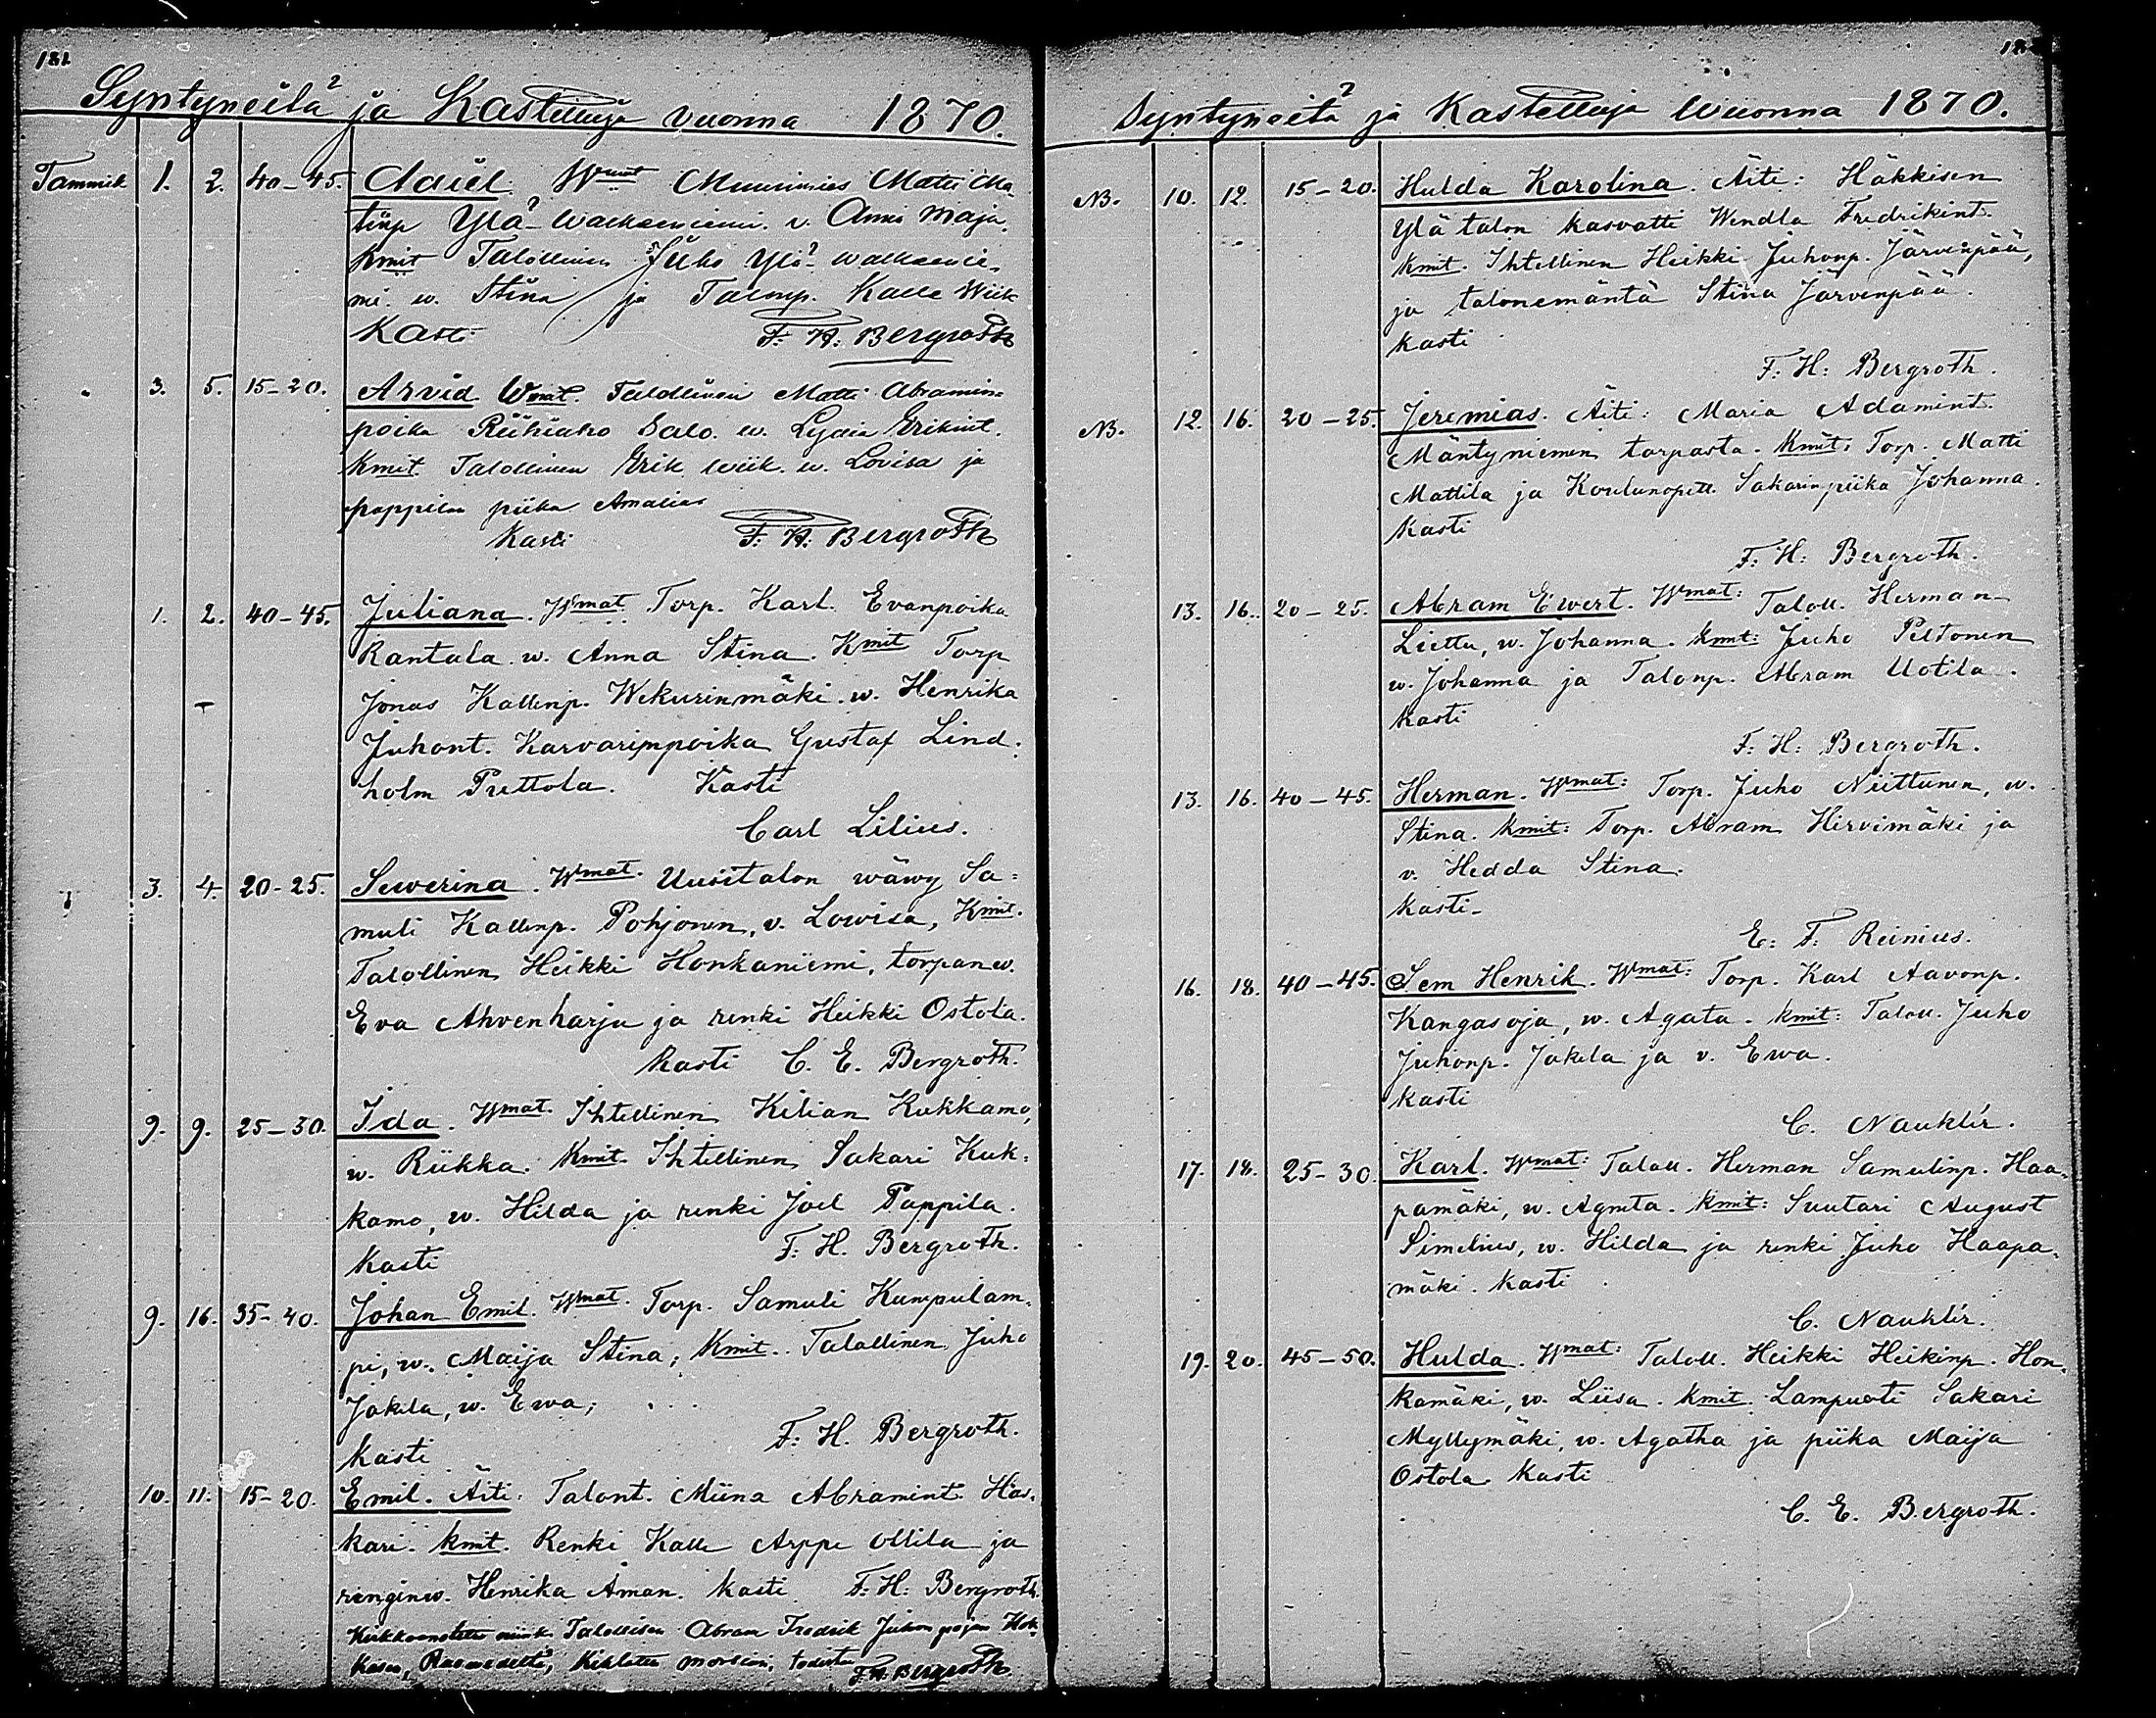 182
Syntyneitä ja Kastettuja vuonna 1870.
Tammik 1. 2. 40-45. Adiel. Wmat Muurimies Matti Ma
tinp Ylä-Walkeeniemi. v. Anna Maja.
Kmit Talollinen Juho Ylä-Walkeenie-
mi. w. Stina ja Talonp. Kalle Wiik
Kasti F. H. Bergroth
" 3. 5. 15-20. Arvid Wmat. Talollinen Matti Abramin-
poika Riihiaho Salo. w. Lydia Erikint.
Kmit. Talollinen Erik Wiik. w. Lovisa ja
pappilan piika Amalia
Kasti F. H. Bergroth
1. 2. 40-45. Juliana. Wmat. Torp. Karl. Evanpoika
Rantala. w. Anna Stina. Kmit Torp
Jonas Kallenp. Wekurinmäki. w. Henrika
Juhont. Karvarinpoika Gustaf Lind-
holm Puttola. Kasti
Carl Lilius.
3. 4. 20-25. Sewerina. Wmat. Uusitalon wäwy Sa-
muli Kallenp. Pohjonen, v. Lowisa, Kmit.
Talollinen Heikki Honkaniemi, torpanw.
Eva Ahvenharju ja renki Heikki Ostola.
Kasti C. E. Bergroth.
9. 9. 25-30. Ida. Wmat. Ihtellinen Kilian Kukkamo,
w. Riikka. Kmit. Ihtellinen Sakari Kuk-
kamo, w. Hilda ja renki Joel Pappila.
Kasti F. H. Bergroth.
9. 16. 35-40. Johan Emil. Wmat. Torp. Samuli Kumpulam-
pi, w. Maija Stina; Kmit. Talollinen Juho
Jakila, w. Ewa; ...
Kasti F. H. Bergroth.
10. 11. 15-20. Emil. Äiti: Talont. Miina Abramint. Has-
kari. kmit. Renki Kalle Arppe Ollila ja
renginw. Henrika Åman. Kasti F. H. Bergroth
Talollisen Abram Fredrik Juhon pojan
Kihlatun morsian, todista F. H. Bergroth
Syntyneitä ja Kastettuja Wuonna 1870.
NB. 10. 12. 15-20. Hulda Karolina. Äiti: Häkkisen
Ylä talon kasvatti Wendla Fredrikint.
Kmit. Ihtellinen Heikki Juhonp. Järvenpää,
ja talonemäntä Stina Järvenpää.
Kasti
F. H: Bergroth.
NB. 12. 16. 20-25. Jeremias. Äiti: Maria Adamint.
Mäntyniemen torpasta. Kmit: Torp. Matti
Mattila ja Koulunopett. Sakarin piika Johanna.
Kasti
F. H: Bergroth.
13. 16. 20-25. Abram Ewert. Wmat: Taloll. Herman
Liettu, w. Johanna. Kmit: Juho Peltonen
w. Johanna ja Talonp. Abram Uotila.
Kasti
F. H: Bergroth.
13. 16. 40-45. Herman. Wmat: Torp. Juho Niittunen, w.
Stina. Kmit: Torp. Abram Hirvimäki ja
v. Hedda Stina.
Kasti-
E: F. Reinius.
16. 18. 40-45. Sem Henrik. Wmat: Torp. Karl Aavonp.
Kangasoja, w. Agata. Kmit: Taloll. Juho
Juhonp. Jakila ja v. Ewa.
Kasti
C. Nauklér.
17. 18. 25-30. Karl. Wmat: Taloll. Herman Samulinp. Haa-
pamäki, w. Agneta. Kmit: Suutari August
Simelius, w. Hilda ja renki Juho Haapa-
mäki. Kasti
C. Nauklér.
19. 20. 45-50. Hulda. Wmat: Taloll. Heikki Heikinp. Hon-
kamäki, w. Liisa. Kmit. Lampuoti Sakari
Myllymäki, w. Agatha ja piika Maija
Ostola. Kasti
C. E. Bergroth.